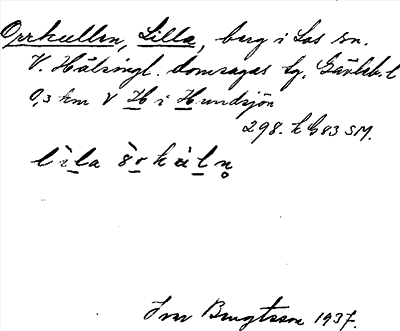 Orrkullen, Lilla, berg i Los sn.
V. Hälsingl. domsagas tg, Gävleb. l
0,3 km V H i Hundsjön
298. h G83 SM.
Ivar Bengtsson 1937.